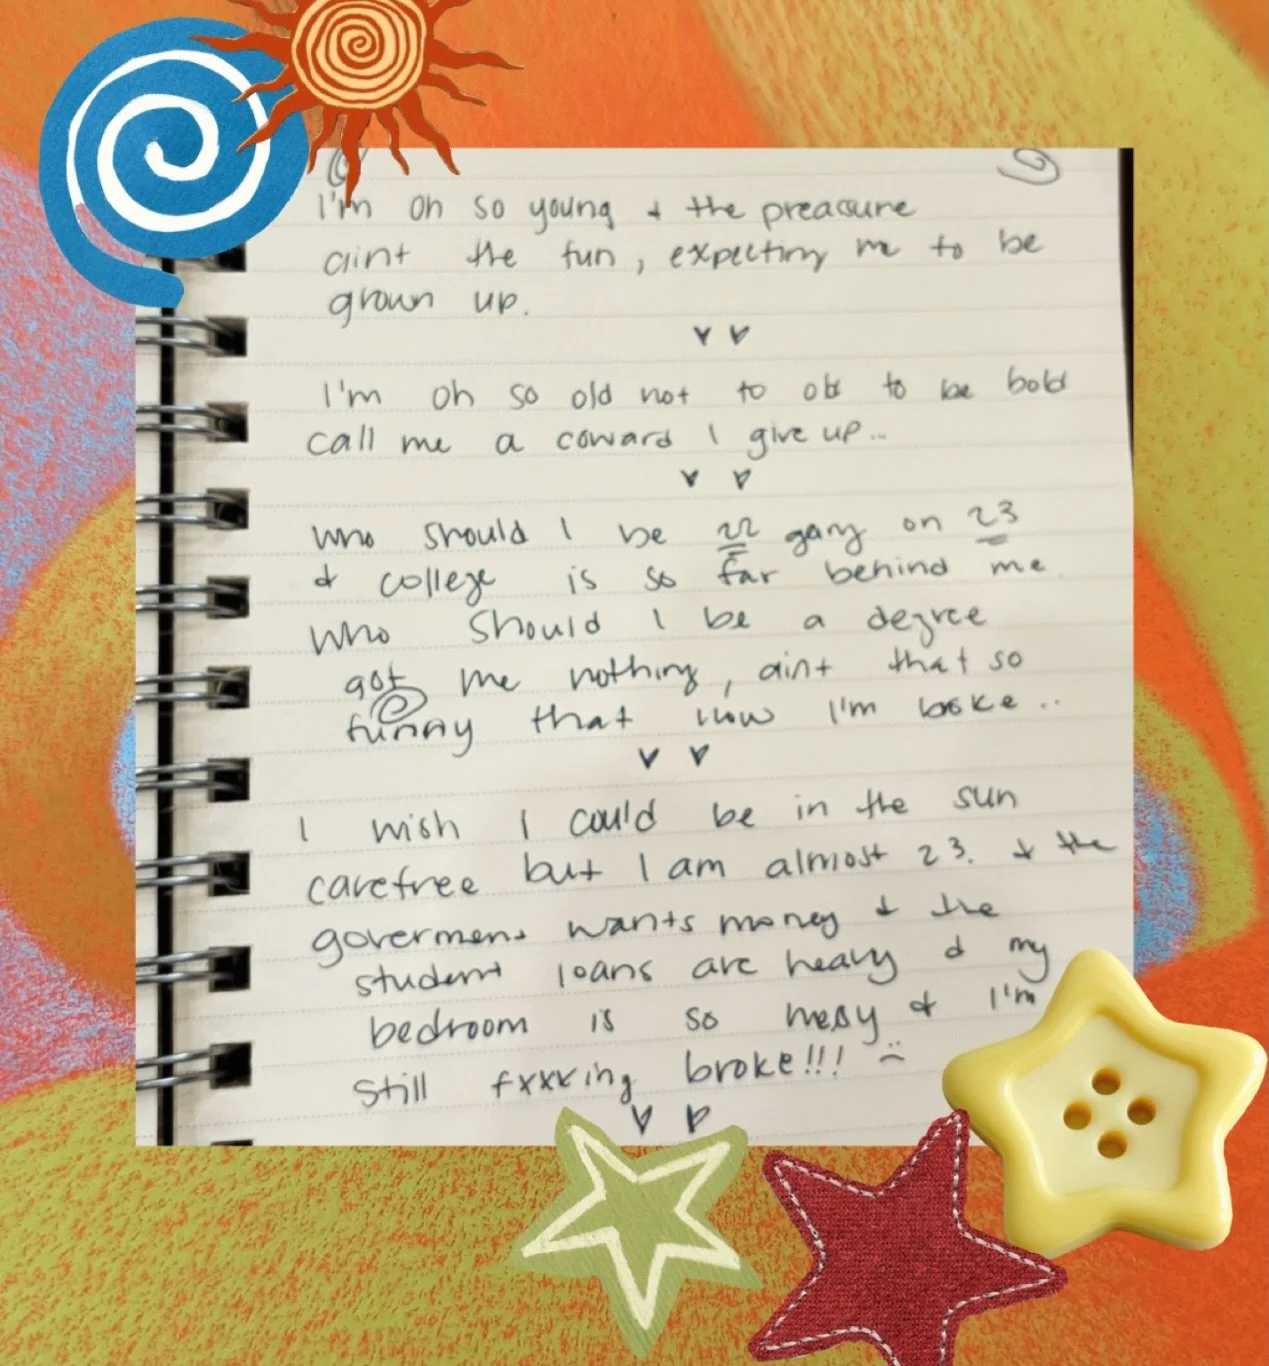 I'm oh so young & the preassure
aint the fun, expecting me to be
grown up.
I'm oh so old not to old to be bold
call me a coward I give up...
Who should I be 22 gang on 23
& college is so far behind me
Who should I be a degree
got me nothing, aint that so
funny that now I'm broke..
I wish I could be in the sun
carefree but I am almost 23. & the
goverment wants money & the
student loans are heavy & my
bedroom is so messy & I'm
still fxxking broke!!! :(